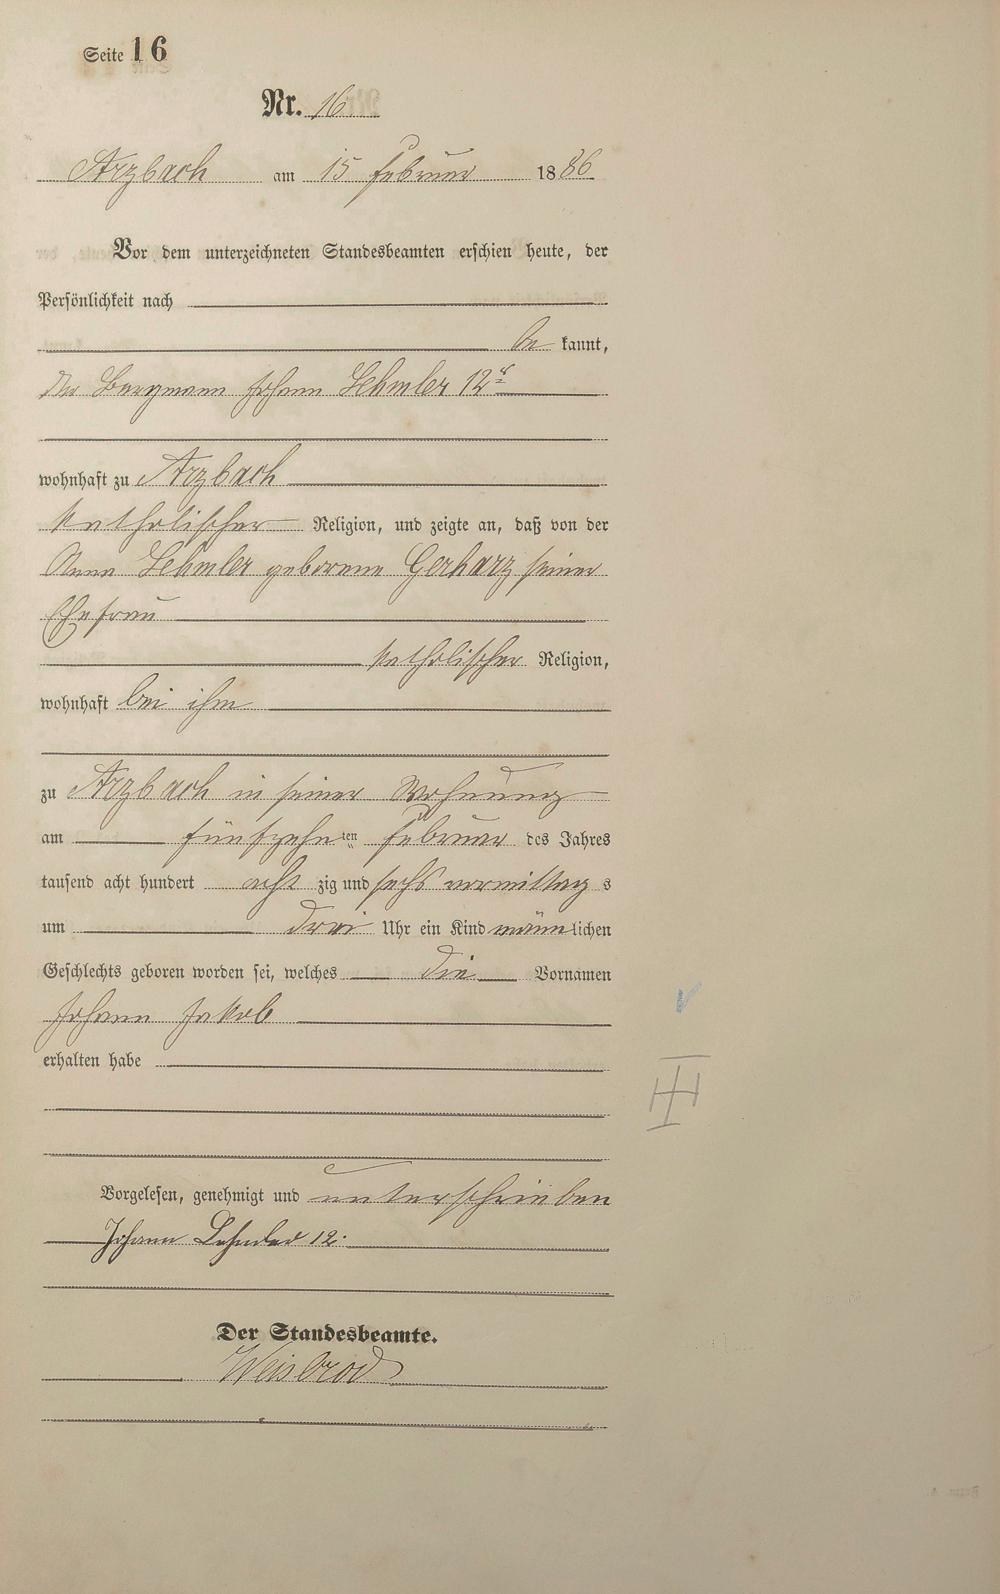 Seite 16
Nr. 16
Arzbach am 15 Februar 1886
Vor dem unterzeichneten Standesbeamten erschien heute, der
Persönlichkeit nach
be kannt,
der Bergmann Johann Lehmler 12r
wohnhaft zu Arzbach
katholischer Religion, und zeigte an, daß von der
Anna Lehmler geborene Gerharz seiner
Ehefrau
katholischer Religion,
wohnhaft bei ihm
zu Arzbach in seiner Wohnung
am fünfzehnten Februar des Jahres
tausend acht hundert acht zig und sechs vormittag s
um drei Uhr ein Kind männlichen
Geschlechts geboren worden sei, welches die Vornamen
Johann Jakob
erhalten habe
Vorgelesen, genehmigt und unterschrieben
Johann Lehmler 12.
Der Standesbeamte.
Weisbrod